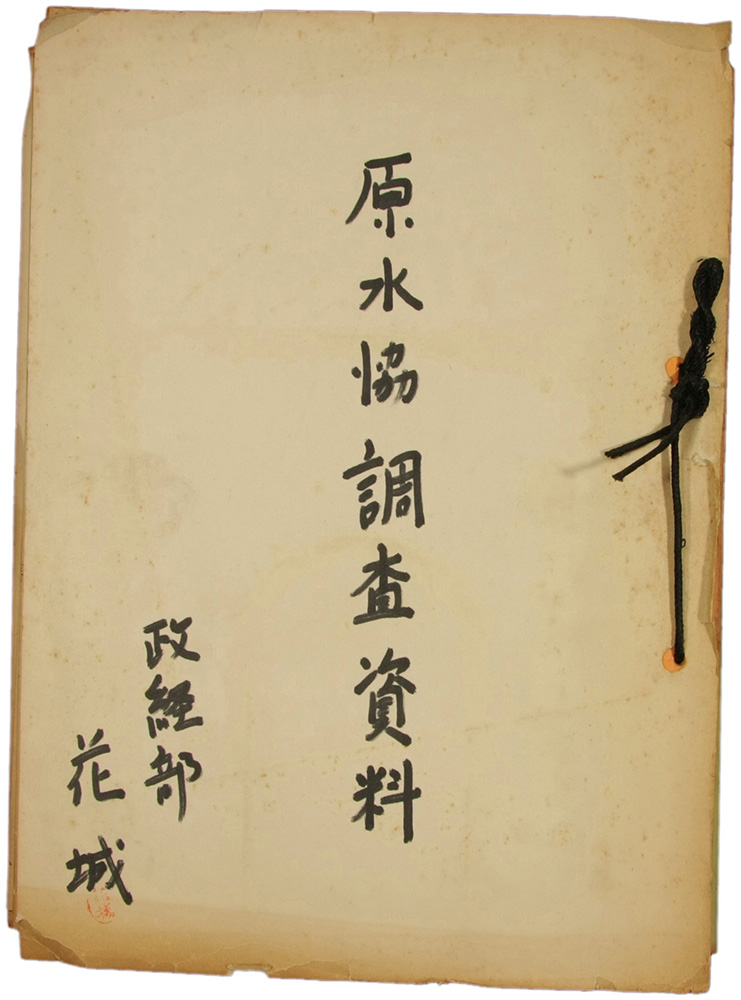 原水協調査資料
政経部
花城